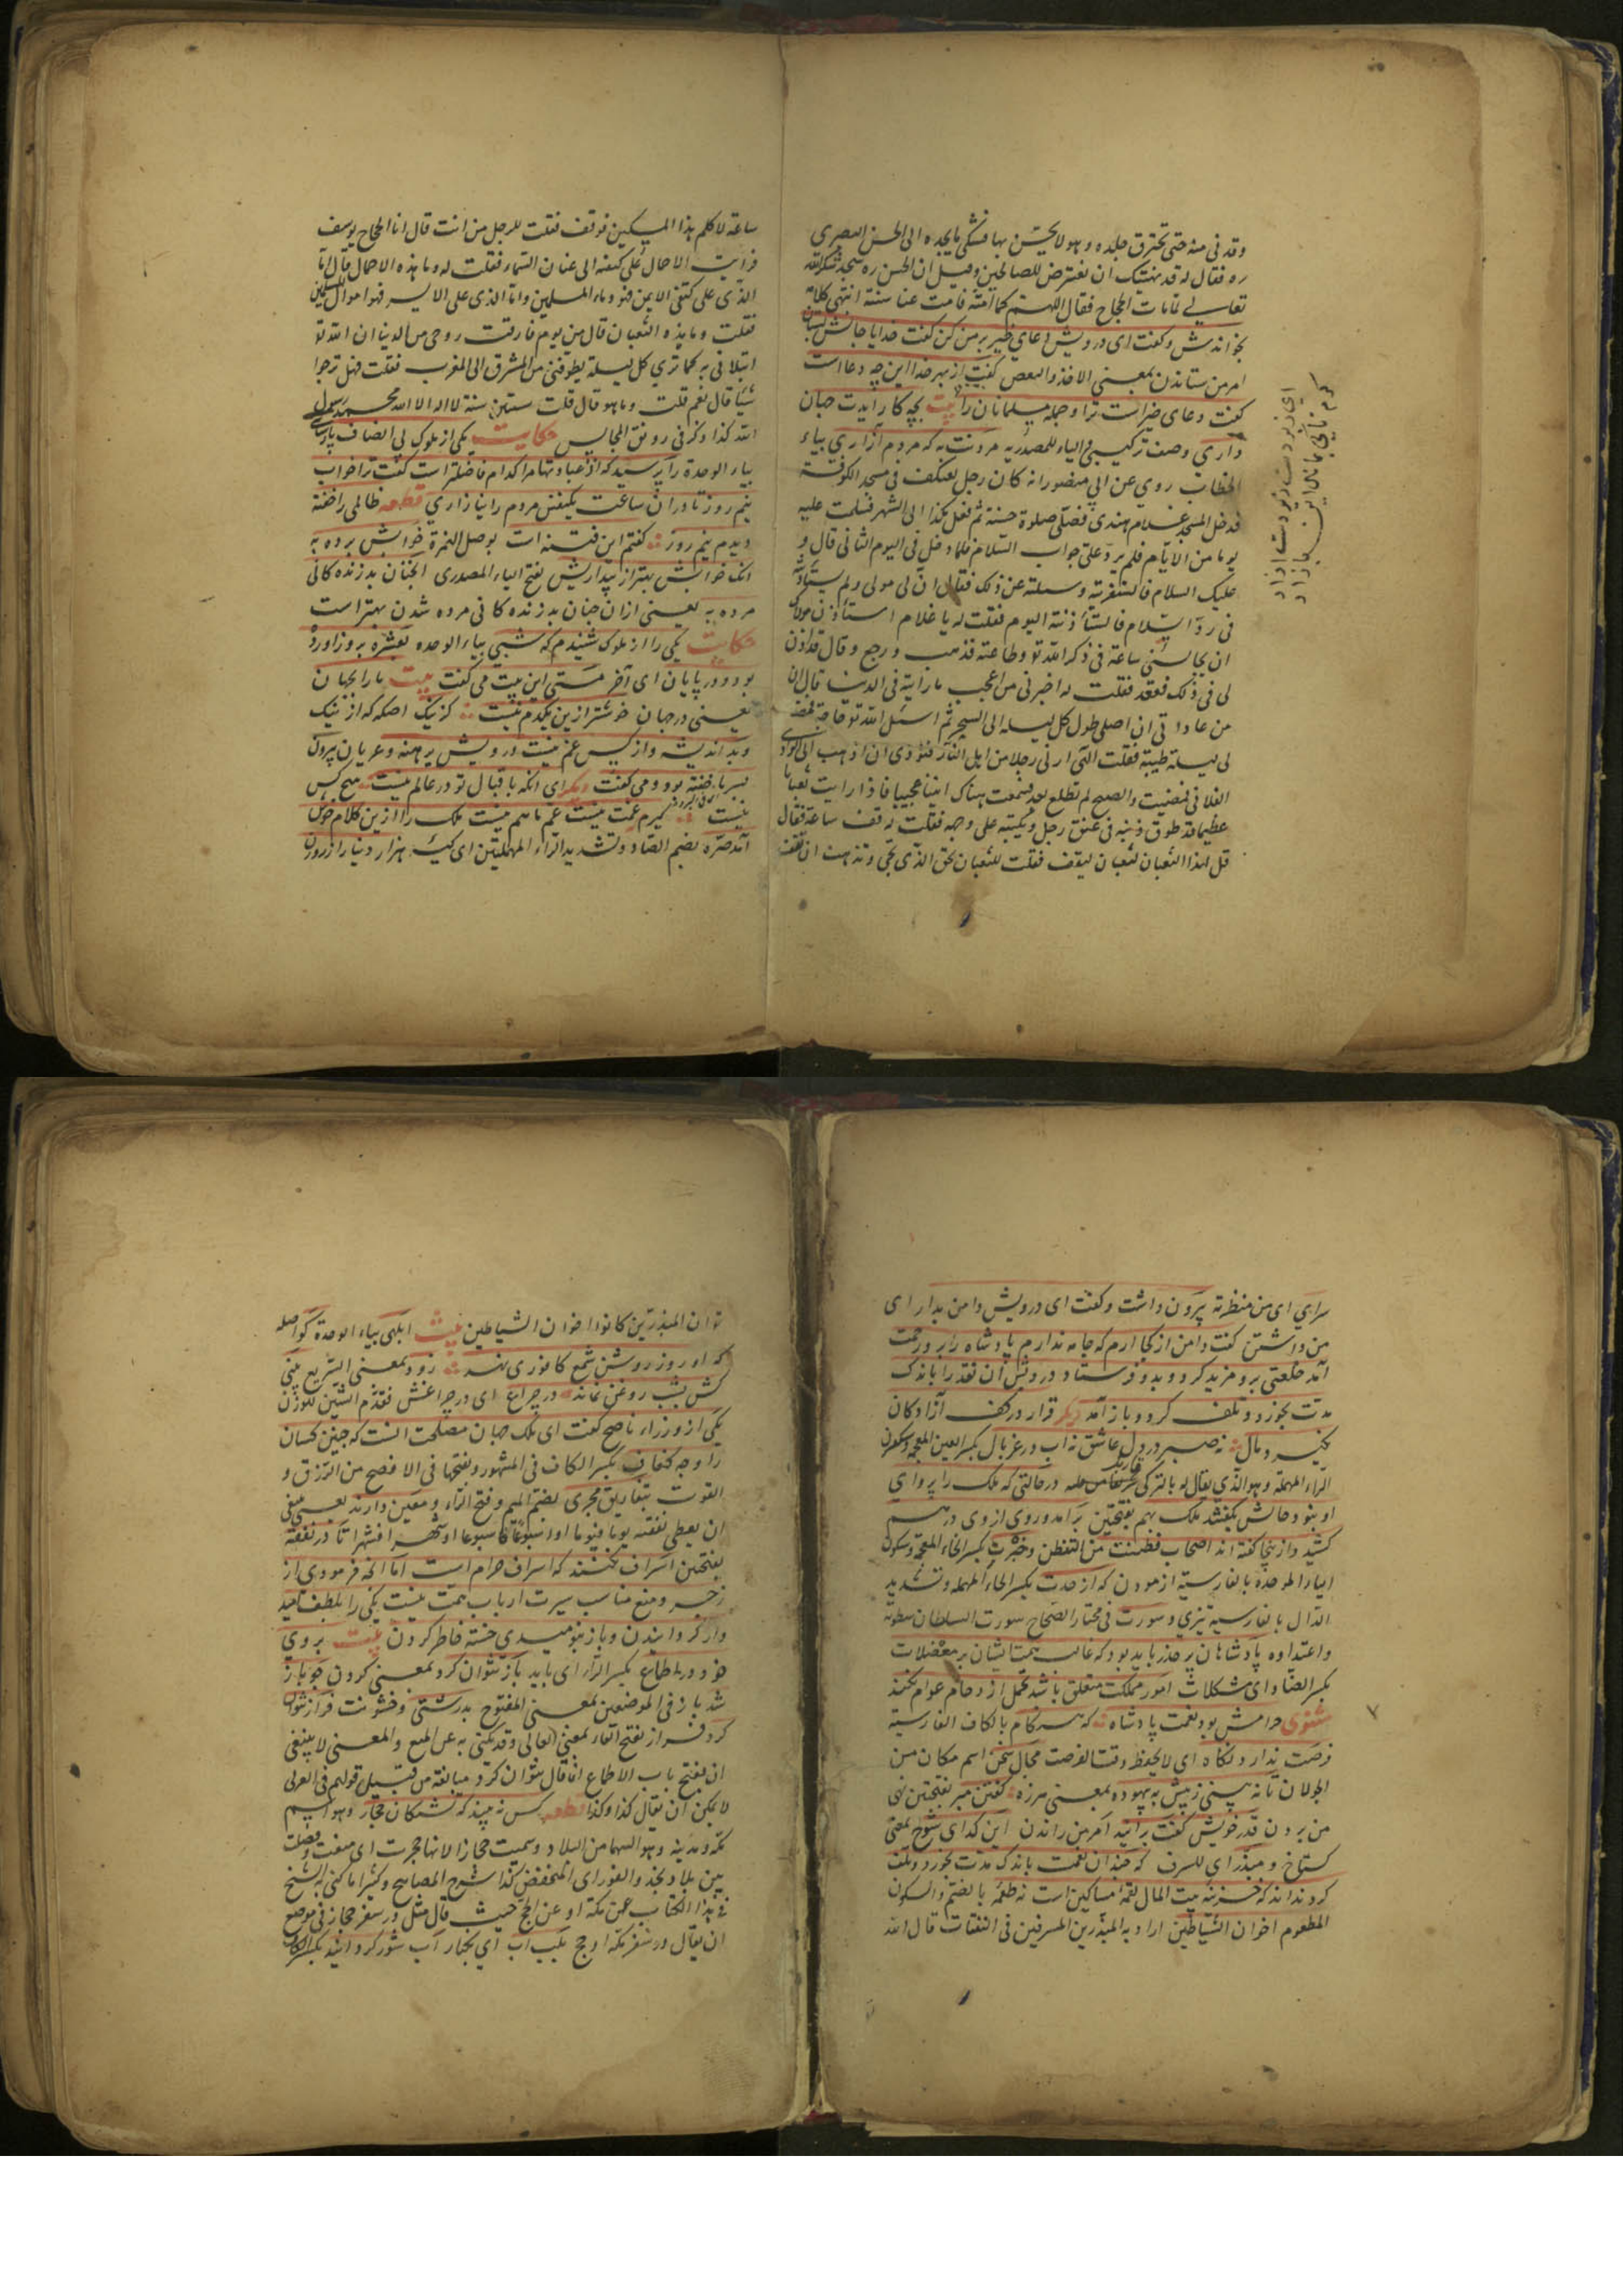 وقد فی منه حتی تحترق جلده وهو لا یحسّ بها فشکی ما یجده الی الحسن البصری
ره فقال له قد نهیتک ان تعترض للصالحین وقیل ان الحسن ره سجد شکرا لله
تعالی لما مات الحجاج فقال اللهم کما امته فامت عنا سنته انتهی کلامه
بخواندش وگفت ای درویش دعای خیر بر من کن گفت خدایا جانش بستان
امر من ستاندن بمعنی الاخذ والبعض گفت از بهر خدا این چه دعا است
گفت دعای خیر است ترا وجمله مسلمانان را بیت بچه کار آیدت جهان
داری وصف ترکیبی والیاء للمصدریه مردنت به که مردم آزاری بیاء
الخطاب روی عن ابی منصور انه کان رجل یعتکف فی مسجد الکوفة
فدخل المسجد غلام هندی فصلی صلوة حسنة ثم فعل هکذا الی الشهر فسلمت علیه
یوما من الایام فلم یردّ علیّ جواب السّلام فلما دخل فی الیوم الثانی قال و
علیک السلام فاستغربته وسئلته عن ذلک فقال انّ لی مولی ولم یستأذنه
فی ردّ السّلام فاستأذنته الیوم فقلت له یا غلام استأذن مولاک
ان یجالسنی ساعة فی ذکر الله تو وطاعته فذهب ورجع وقال قد اذن
لی فی ذلک فقعد فقلت له اخبرنی من اعجب ما رأیته فی الدنیا قال ان
من عاداتی ان اصلی طول کل لیلة الی السحر ثم اسئل الله تو حاجة فمضت
لی لیلة طیبة فقلت الهی ارنی رجلا من اهل النار فنودی ان اذهب الی الوادی
الفلانی فمضیت والصبح لم تطلع بعد فسمعت هناک انینا عجیبا فاذا رایت ثعبانا
عظیما قد طوق ذنبه فی عنق رجل ونکبته علی وجهه فقلت له قف ساعة فقال
قل لهذا الثعبان لثعبان لیوقف فقلت للثعبان بحق الذی یجی وتذهب ان تقف
ای زبردست زیردست آزار
گرم تا کی بماند این بازار
ساعة لاکلم هذا المسکین فوقف فقلت للرجل من انت قال انا الحجاج یوسف
فرایت الاحمال علی کتفه الی عنان السماء فقلت له وما هذه الاحمال قال امّا
الذی علی کتفی الایمن فهو دماء المسلمین وامّا الذی علی الایسر فهو اموال المسلمین
فقلت وما هذه الثعبان قال من یوم فارقت روحی من الدنیا ان الله تو
ابتلانی به کما تری کل لیلة یطوفنی من المشرق الی المغرب فقلت فهل ترجوا
شیئا قال نعم قلت وما هو قال قلت ستین سنة لا اله الا الله محمد رسول
الله کذا ذکر فی رونق المجالس حکایت یکی از ملوک بی انصاف پارسای
بیاء الوحدة را پرسید که از عبادتها مرا کدام فاضلتر است گفت ترا خواب
نیم روز تا دران ساعت یکنفس مردم را نیازاری قطعه ظالمی را خفته
دیدم نیم روز گفتم این فتنه است بوصل الهمزة خوابش برده به
انک خوابش بهتر از بیداریش بفتح الیاء المصدری الچنان بد زنده کانی
مرده به یعنی ازان چنان بد زنده کانی مرده شدن بهتر است
حکایت یکی را از ملوک شنیدم که شبی بیاء الوحده بعشرة بروز آورده
بود ودر پایان ای آخر مستی این بیت می گفت بیت ما را بجهان
یعنی در جهان خوشتر ازین یکدم نیست کز نیک اصله که از نیک
وبد اندیشه واز کس غم نیست درویش برهنه وعریان بیرون
بسرما خفته بود ومی گفت دیگر ای انکه باقبال تو در عالم نیست هیچ کس
نیست گیرم غمت نیست غم ما هم نیست ملک را ازین کلام خوش
آمد صرّه بضم الصاد وتشدید الراء المهملتین ای کیسه هزار دینار از روزن
سرای ای من منظرته بیرون داشت وگفت ای درویش دامن بدار ای
من داشتن گفت دامن از کجا ارم که جامه ندارم پادشاه را برو رحمت
آمد خلعتی برو مزید کرد وبدو فرستاد درویش آن نقد را باندک
مدّت بخورد وتلف کرد وباز آمد دیگر قرار در کف آزادکان
نگیرد مال نه صبر در دل عاشق نه اب در غربال بکسر الغین المعجمه وسکون
الراء المهملة وهو الذی یقال له بالترکی قلبر در حالتی که ملک را پروای
او نبود حالش بگفتند ملک بهم بفتحتین برآمد وروی از وی درهم
کشید وازینجا گفته اند اصحاب فطنت من التفطن وخبرت بکسر الخاء المعجمة وسکون
الباء الموحدة بالفارسیة ازمودن که از حدت بکسر الحاء المهمله وتشدید
الدال بالفارسیة تیزی وسورت فی مختار الصحاح سورت السلطان سطوته
واعتداوه پادشاهان پر حذر باید بود که غالب همت ایشان بر معضلات
بکسر الضاد ای مشکلات امور مملکت متعلق باشد تحمل ازدحام عوام نکند
مثنوی حرامش بود نعمت پادشاه که هنکام بالکاف الفارسیة
فرصت ندارد نکاه ای لا یحفظ وقت الفرصت مجال سخن اسم مکان من
الجولان تا نه بینی ز پیش به بیهوده بمعنی هرزه گفتن مبر بفتحتین نهی
من بردن قدر خویش گفت برانید امر من راندن این گدای شوخ بمعنی
گستاخ ومبذر ای المسرف که چندان نعمت باندک مدت بخورد وتلف
کرد نداند که خزینه بیت المال لقمه مساکین است نه طعمه بالضم والسکون
المطعوم اخوان الشیاطین اراد به المبذرین المسرفین فی النفقات قال الله
تو ان المبذرین کانوا اخوان الشیاطین بیت ابلهی بیاء الوحدة کو اصله
که او روز روشن شمع کافوری نهد زود بمعنی السریع بینی
کش بشب روغن نماند در چراغ ای در چراغش فقدّم الشین للوزن
یکی از وزراء ناصح گفت ای ملک جهان مصلحت انست که چنین کسان
را وجه کفاف بکسر الکاف فی المشهور وبفتحها فی الافصح من الرزق و
القوت بتفاریق مجری بضم المیم وفتح الراء ومعین دارند یعنی ینبغی
ان یعطی نفقته یوما فیوما او اسبوعا فاسبوعا او شهرا فشهرا تا در نفقة
بفتحتین اسراف نکنند که اسراف حرام است اما انچه فرمودی از
زجر ومنع مناسب سیرت ارباب همت نیست یکی را بلطف امید
وار کردانیدن وباز بنومیدی خسته خاطر کردن بیت بروی
خود در اطماع بکسر الراء ای باید باز نتوان کرد بمعنی کردن چو باز
شد باز فی الموضعین بمعنی المفتوح بدرشتی وخشونت فراز نتوان
کرد فراز بفتح الفاء بمعنی العالی وقد یکنی به عن المنع والمعنی لا ینبغی
ان یفتح باب الاطماع انما قال نتوان کرد مبالغة من قبیل قولهم فی العرلی
لا یمکن ان یقال کذا وکذا قطعه کس نه بیند که تشنکان حجاز وهو اسم
مکه ومدینه وحوالیهما من البلاد وسمیت حجازا لانها حجرت ای منعت وفصلت
بین بلاد نجد والغور ای المنخفض کذا شرح المصابیح وکثیرا ما کنی به الشیخ
فی هذا الکتاب عن مکة او عن الحج حیث قال مثل در سفر حجاز فی موضع
ان یقال در سفر مکه او حج بلب اب ای بکنار آب شور کرد ایند بکسر الکاف